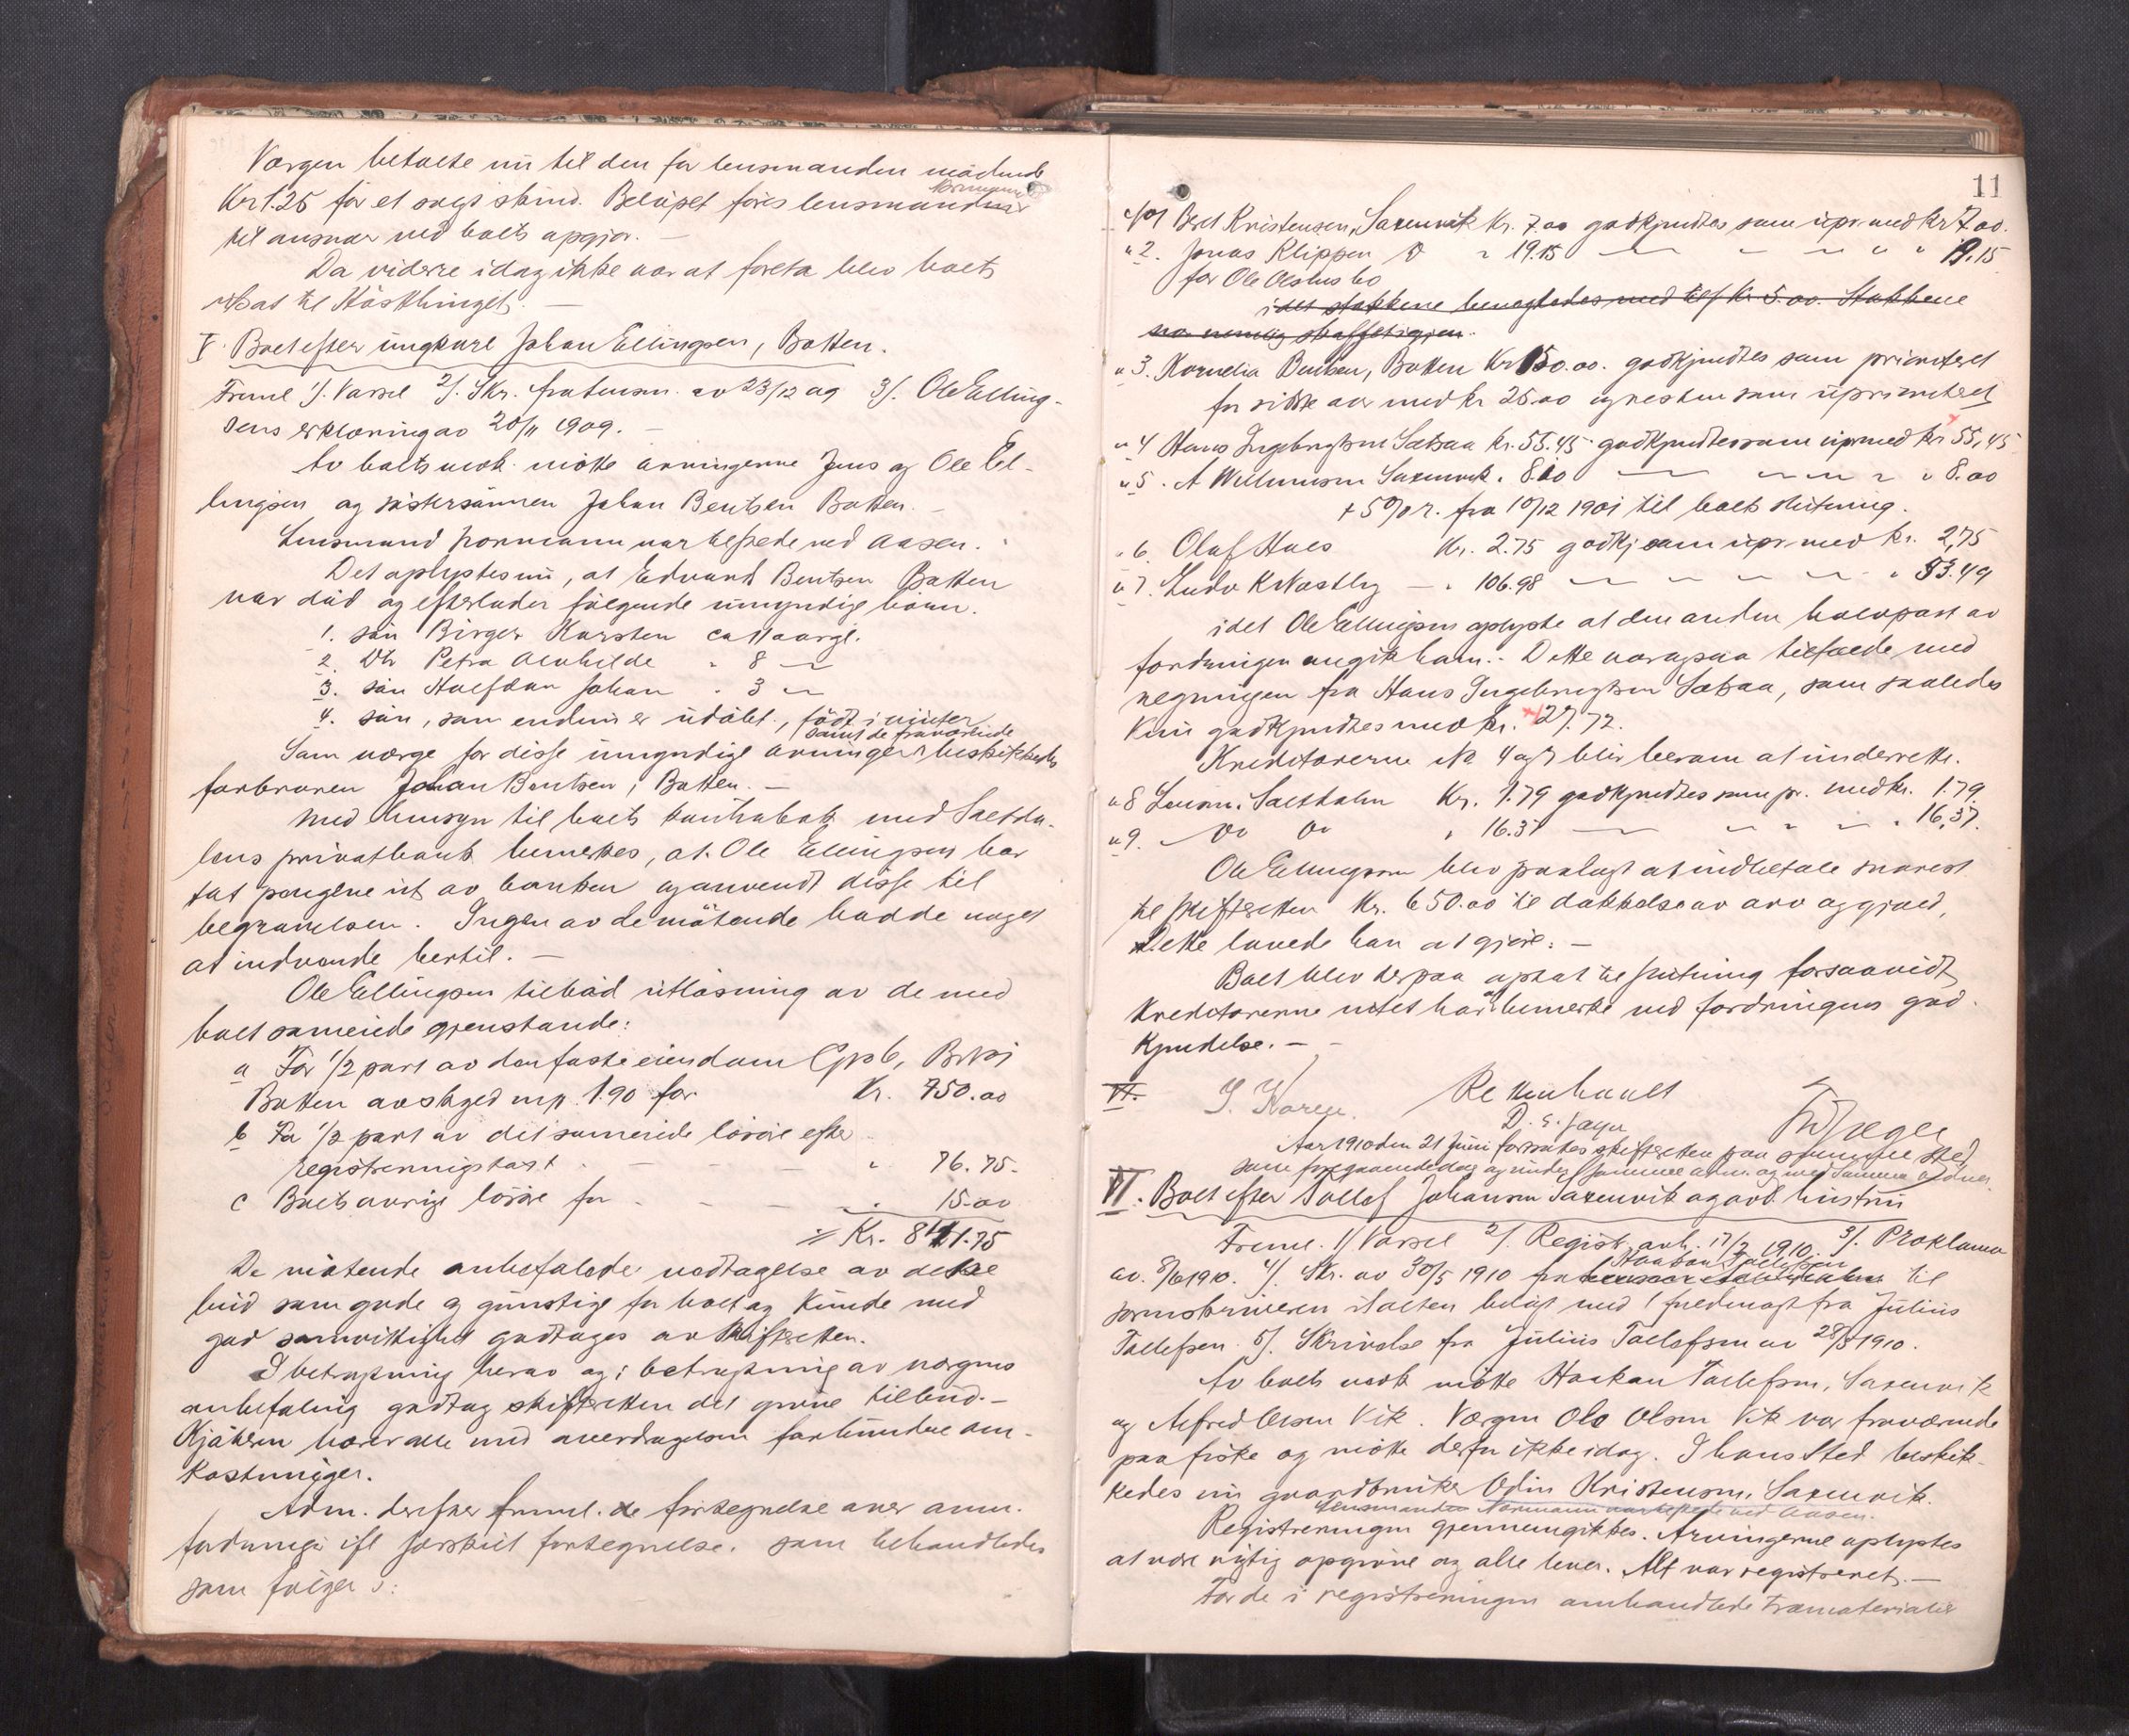 Værgen betalte nu til den for lensmanden mødende
Normann
Kr 1.25 for et solgt skind. Beløpet føres lensmand
til ansvar ved boets opgjør. —
Da videre idag ikke var at foreta blev boet
utsat til Høstthinget. —
V. Boet efter ungkarl Johan Ellingsen, Botten.
Freml 1). Varsel 2). Skr. fra lensm. av 23/12 og 3). Ole Elling-
sens erklæring av 20/11 1909. —
Av boets vedk. møtte arvingerne Jens og Ole El-
lingsen og søstersønnen Johan Bentsen Botten. —
Lensmand Normann var tilstede ved Aasen.
Det oplystes nu, at Edvard Bentsen Botten
var død og efterlader følgende umyndige børn.
1. søn Birger Karsten ca 11 aar gl.
2. Dtr Petra Alvhilde " 8 —
3. søn Halfdan Johan " 3 —
4. søn, som endnu er udøbt, født i vinter
samt de fraværende
Som værge for disse umyndige arvinger beskikkedes
farbroren Johan Bentsen, Botten. —
Med hensyn til boets kontrabok med Saltda-
lens privatbank bemerkes, at Ole Ellingsen har
tat pengene ut av banken og anvendt disse til
begravelsen. Ingen av de møtende hadde noget
at indvende hertil. —
Ole Ellingsen tilbød utløsning av de med
boet sameiede gjenstande:
a For 1/2 part av den faste eiendom Gno 6, Bno 1
Botten av skyld mp. 1.90 for Kr. 750.00
b For 1/2 part av det sameiede løsøre efter
registreringstakst . — — — " 76.75.
c Boets øvrige løsøre for . — — — . 15.00
= Kr. 841.75
De møtende anbefalede vedtagelse av dette
bud som gode og gunstige for boet og kunde med
god samvittighet godtages av skifteretten.
I betragtning herav og i betragtning av værgens
anbefaling godtog skifteretten det gjorte tilbud. —
Kjøberen bærer alle med overdragelsen forbundne om-
kostninger.
Adm. derefter freml. de fortegnelse over anm.
fordringer ifl særskilt fortegnelse, som behandledes
som følger:
11
No 1 Berl Kristensen, Saxenvik Kr. 7.00 godkjendtes som upr. med kr 7.00.
" 2. Jonas Klippen " 19.15 — — — " " 19.15
for Ole Olsens bo
idet stokkene
" 3. Kornelia Bentsen, Botten Kr 150.00. godkjendtes som prioritert
for siste aar med kr 25.00 og resten som uprioritert
" 4 Hans Ingebrigtsen Setsaa kr. 55.45 godkjendtes som upr med kr 55,45
" 5. A Willumsen Saxenvik " 8.00 — — — " " 8.00
+ 5 % r. fra 10/12 1901 til boets slutning.
" 6. Olaf Hals Kr. 2.75 godkj som upr med kr. 2,75
" 7. Ludv K Nastby — " 106.98 — — — — " 53.49
idet Ole Ellingsen oplyste at den anden halvpart av
fordringen angik ham. — Dette var ogsaa tilfælde med
regningen fra Hans Ingebrigtsen Setsaa, som saaledes
kun godkjendtes med kr. 27.72.
Kreditorerne No 4 og 7 blir herom at underrette.
" 8 Lensm. i Saltdalen Kr. 1.79 godkjendtes som pr. med kr. 1.79
" 9. Do Do " 16.37 — — — — " 16,37.
Ole Ellingsen blev paalagt at indbetale snarest
til skifteretten Kr. 650.00 til dækkelse av arv og gjæld,
Dette lovede han at gjøre. —
Boet blev derpaa optat til slutning forsaavidt
kreditorerne intet har at bemerke ved fordringens god-
kjendelse. —
VI. Retten hævet
Aar 1910 den 21 Juni fortsattes skifteretten paa samme sted
som foregaaende dag og under samme adm. og med samme vidner.
VI. Boet efter Tollef Johansen Saxenvik og avd. hustru
Freml. 1) Varsel 2). Registr. avh. 17/3 1910. 3). Proklama
Haakon Tollefsen
av 8/6 1910. 4). Skr. av 30/5 1910 fra til
sorenskriveren i Salten belagt med 1 fuldmagt fra Julius
Tollefsen. 5). Skrivelse fra Julius Tollefsen av 28/5 1910.
Av boets vedk møtte Haakon Tollefsen, Saxenvik
og Alfred Olsen Vik. Værgen Ole Olsen Vik var fraværende
paa fiske og møtte derfor ikke idag. I hans sted beskik-
kedes nu gaardbruker Odin Kristensen, Saxenvik.
Lensmanden Normann var tilstede ved Aasen.
Registreringen gjennemgikkes. Arvingerne oplystes
at være rigtig opgivne og alle lever. Alt var registreret. —
For de i registreringen omhandlede træmaterialer